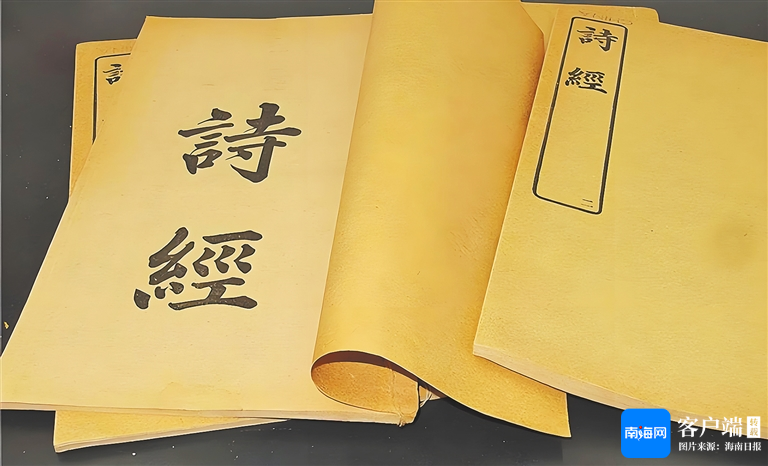 詩
經
詩
經
二
南海网
客户端
转载
图片来源：海南日报